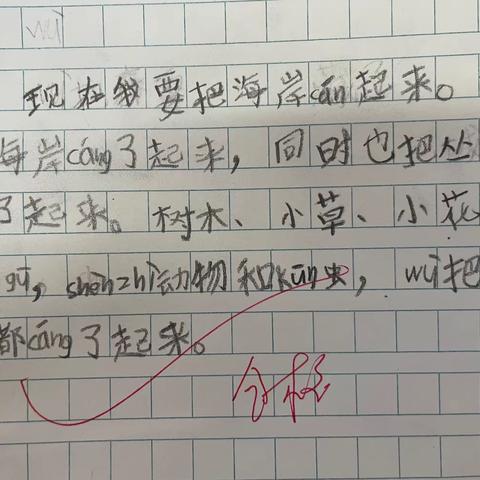 wù
现在我要把海岸cán起来。
海岸cáng了起来，同时也把丛
了起来。树木、小草、小花
gū，shènzhì动物和kūn虫，wù把
都cáng了起来。
合格